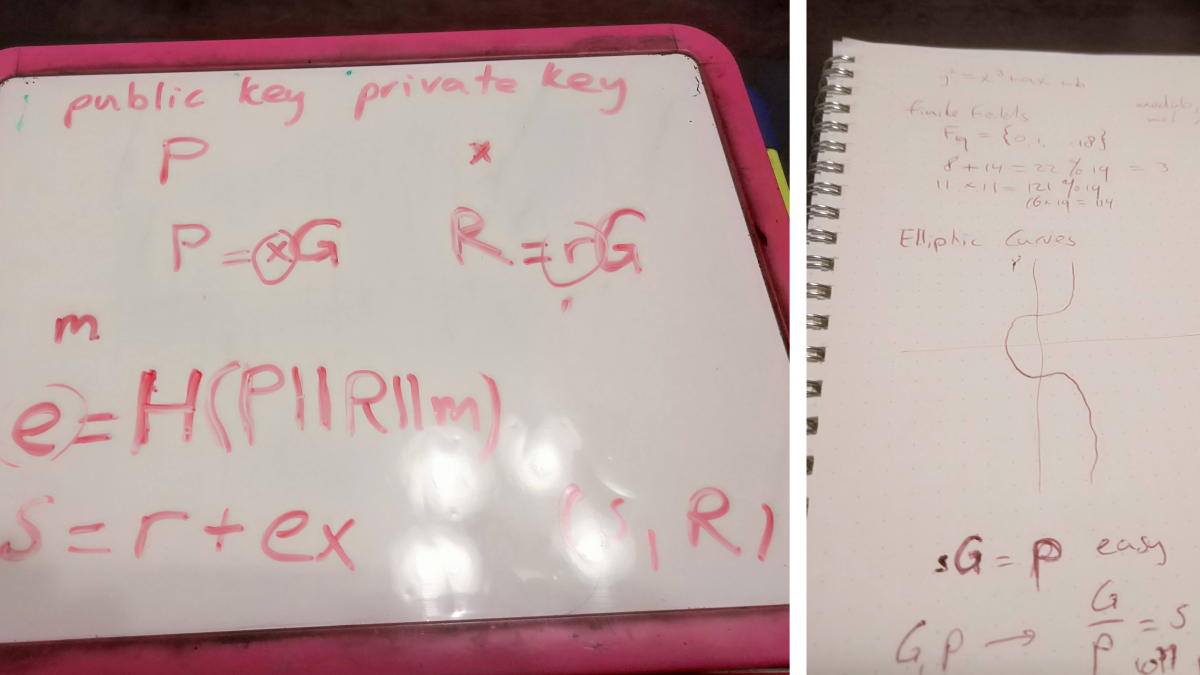 public key private key
P x
P = xG R = rG
m
e = H(P||R||m)
s = r + ex (s, R)
y² = x³ + ax + b
finite fields
F19 = {0, 1, .. 18}
8 + 14 = 22 % 19 = 3
11 × 11 = 121 % 19
Elliptic Curves
sG = P easy
G, P → G/P = s